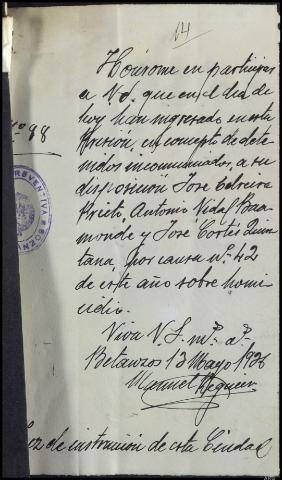 14
Hónrome en participar
a V.S. que en el dia de
hoy han ingresado en esta
Prisión, en concepto de dete-
nidos incomunicados, a su
disposición José Cebreiro
Prieto, Antonio Vidal Baa-
monde y José Cortés Quin-
tana, por causa nº 42
de este año sobre homi-
cidio.
Viva V.S. mˢ. aˢ.
Betanzos 13 Mayo 1936
Manuel
nº 98
PREVENTIVA
de instrucción de esta Ciudad